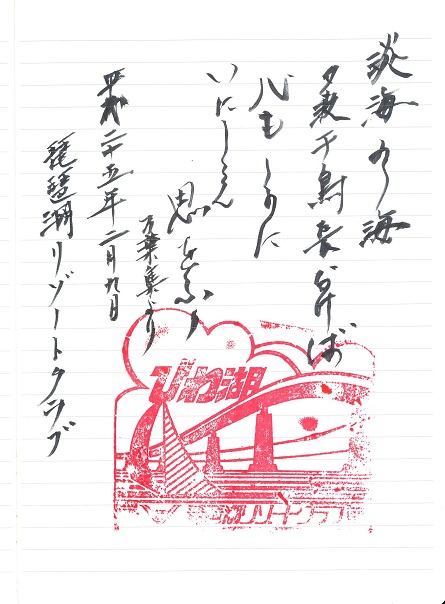 淡海の海
夕波千鳥
なけば
心もしのに
いにしへ
思ほふ
万葉集より
平成二十五年二月九日
琵琶湖リゾートクラブ
びわ湖
湖リゾートクラブ